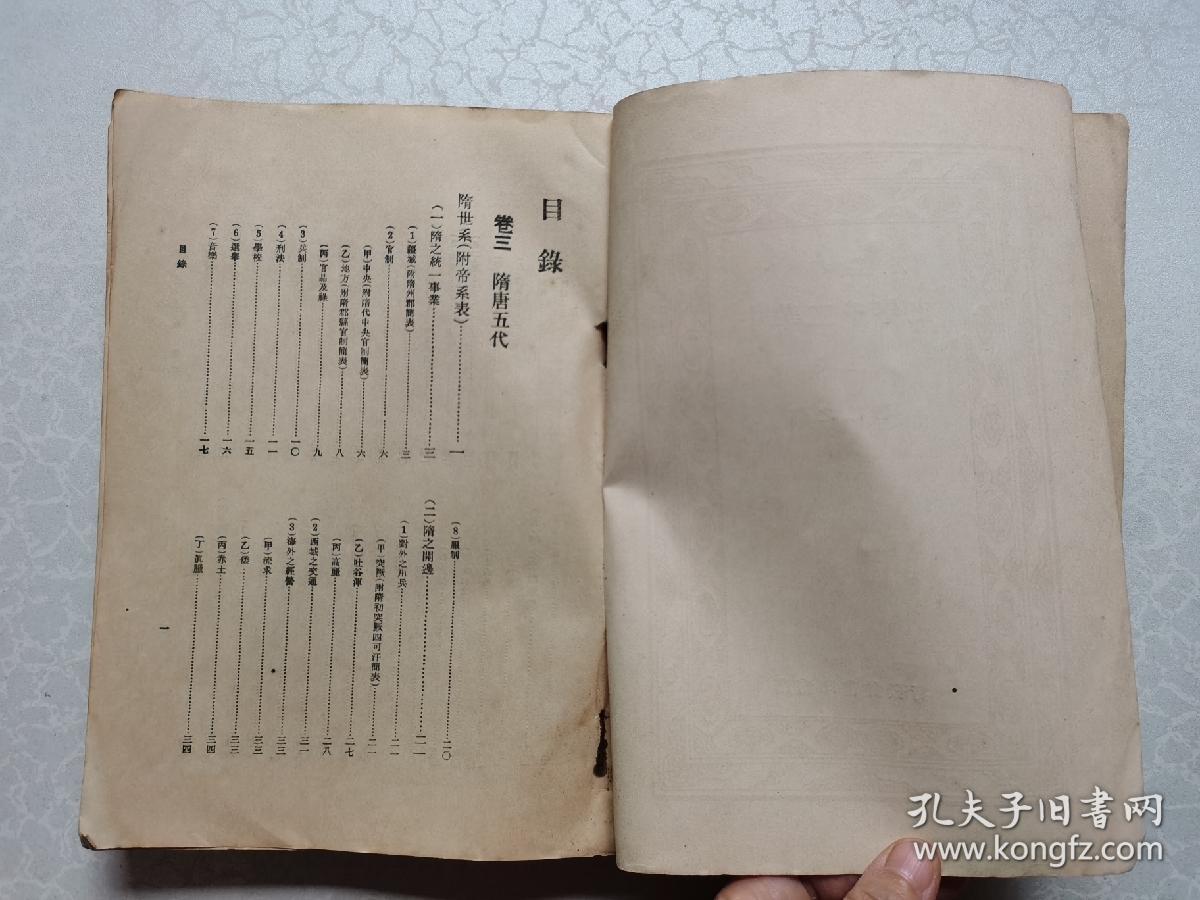 目錄
卷三 隋唐五代
隋世系（附帝系表）……一
（一）隋之統一事業……三
（1）疆域（附隋州郡簡表）……三
（2）官制……六
（甲）中央（附隋代中央官制簡表）……六
（乙）地方（附隋郡縣官制簡表）……八
（丙）官品及祿……九
（3）兵制……一〇
（4）刑法……一一
（5）學校……一五
（6）選舉……一六
（7）音樂……一七
（8）服制……二〇
（二）隋之開邊……二一
（1）對外之用兵……二一
（甲）突厥（附隋初突厥四可汗簡表）……二一
（乙）吐谷渾……二七
（丙）高麗……二八
（2）西域之交通……三一
（3）海外之經營……三三
（甲）流求……三三
（乙）倭……三三
（丙）赤土……三四
（丁）眞臘……三四
目錄
一
孔夫子旧书网
www.kongfz.com